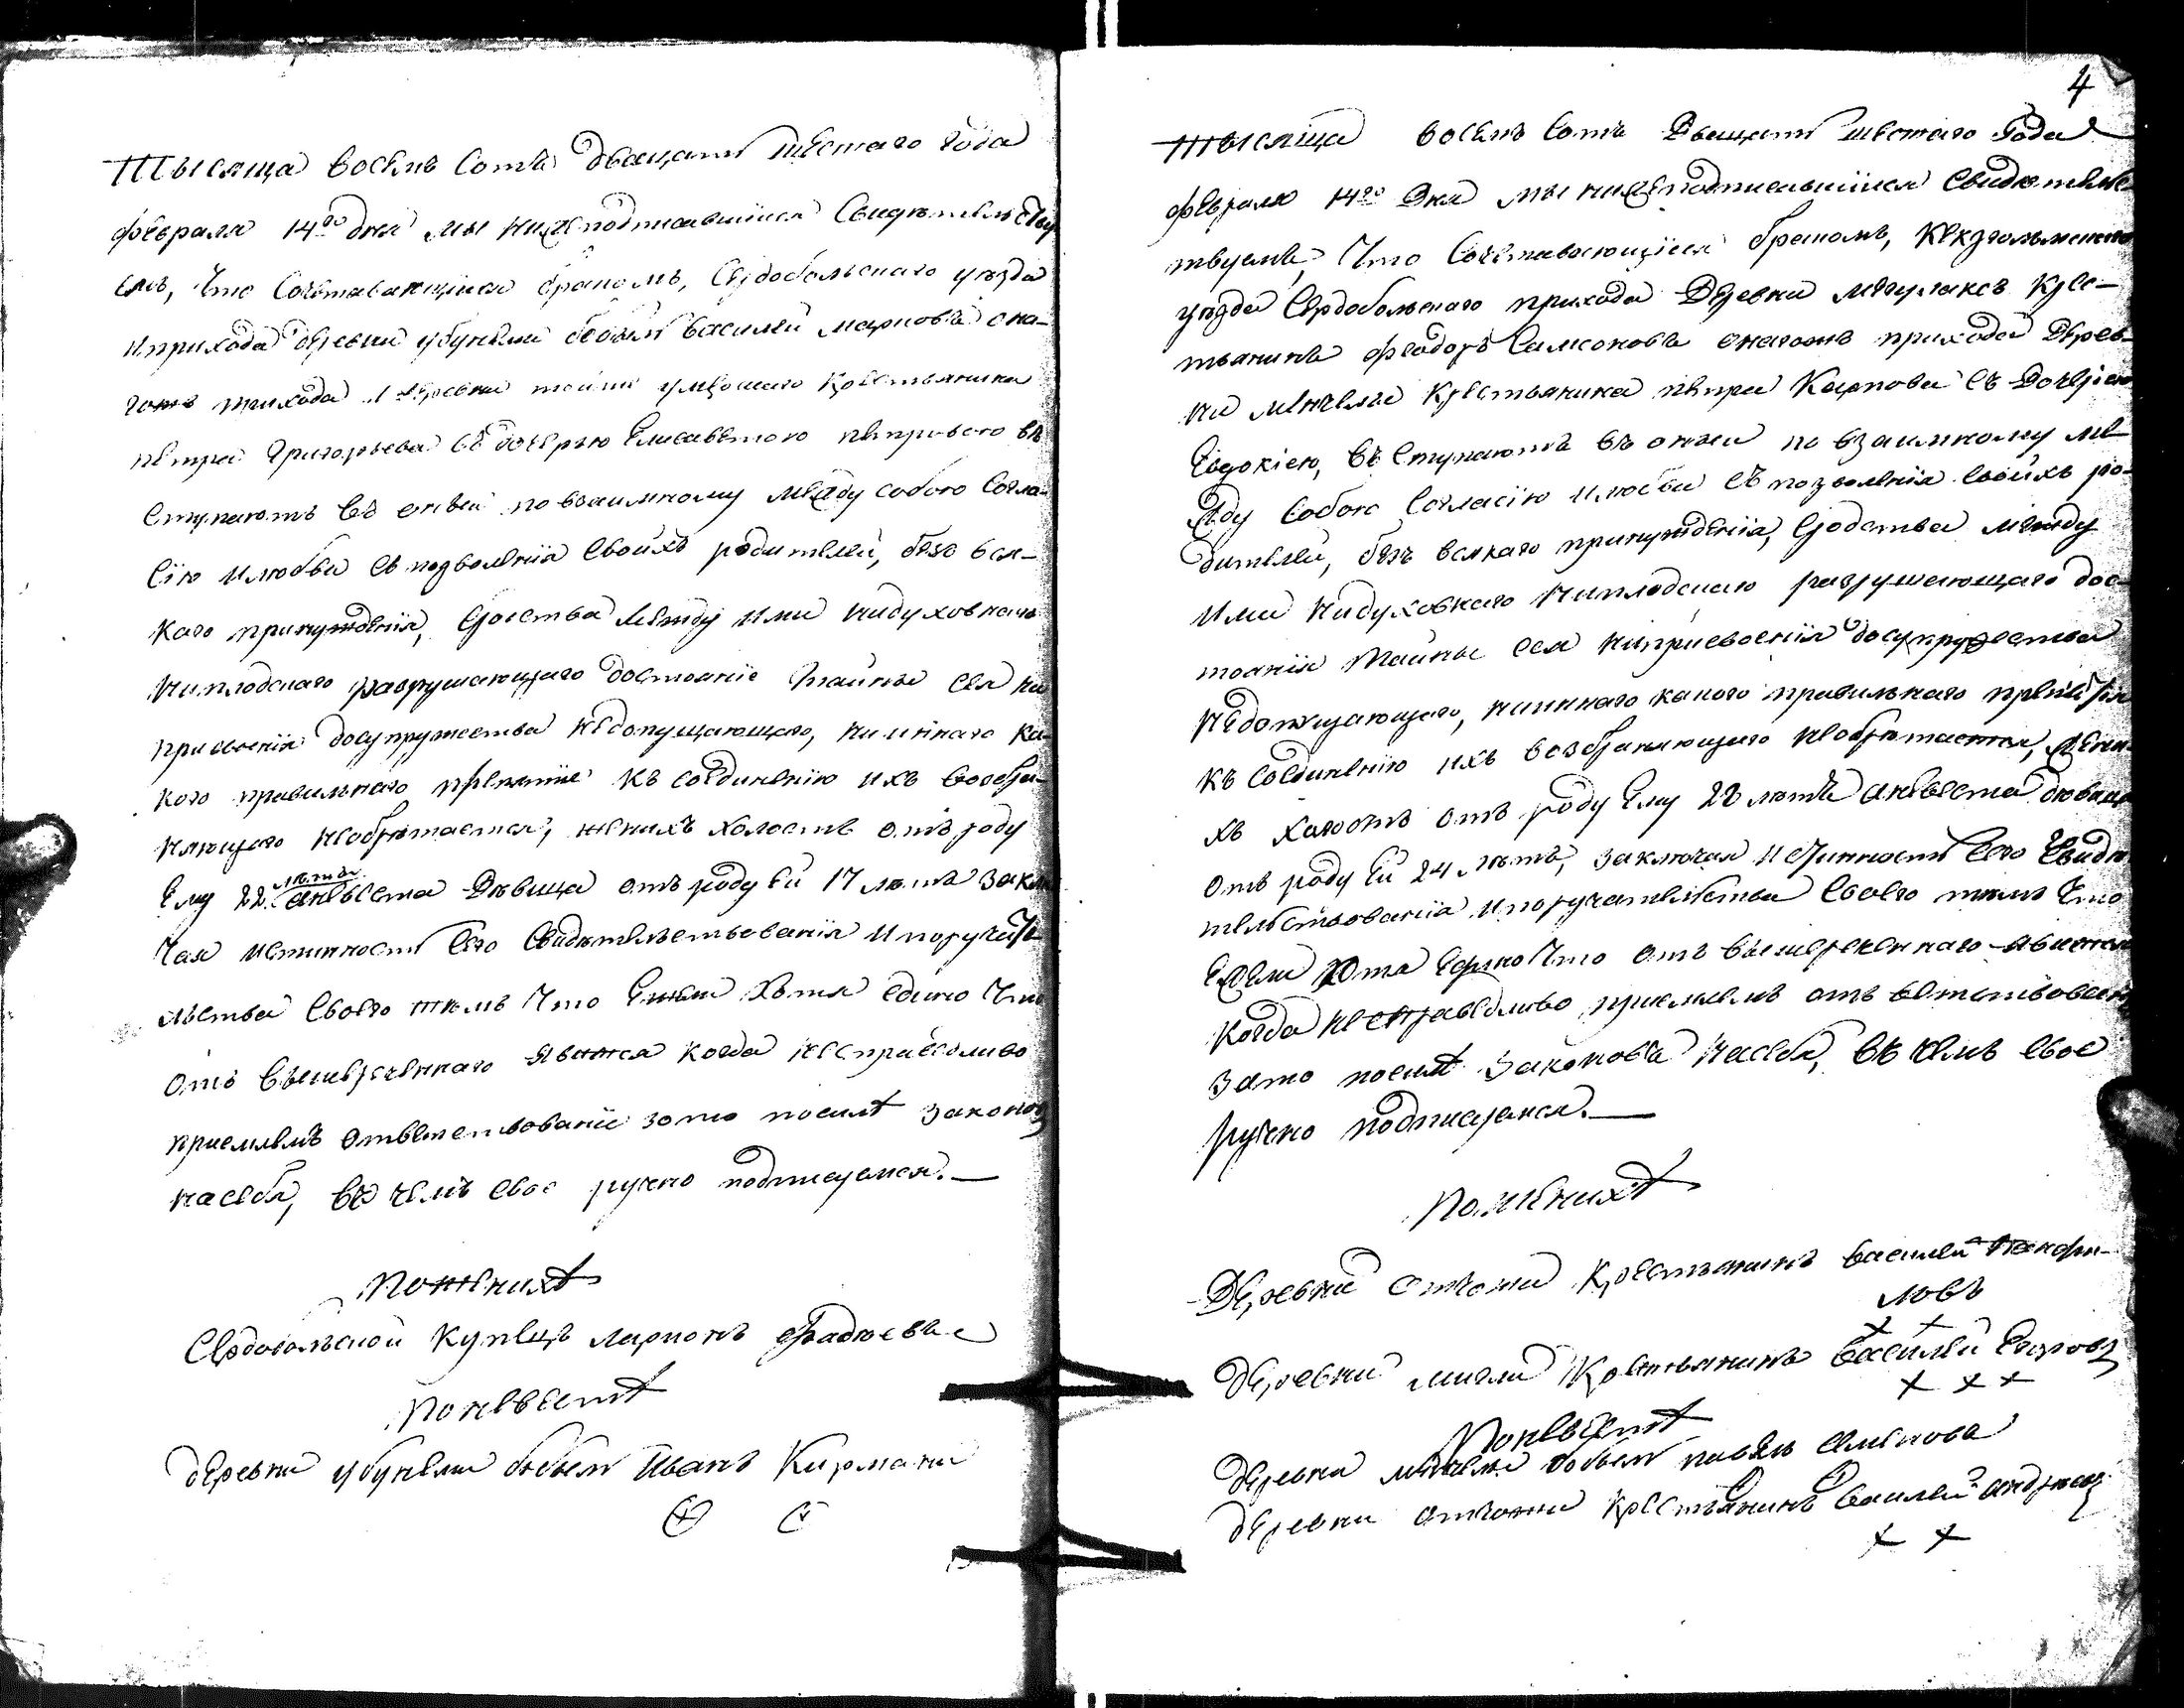 Тысяща восемь сотъ двацать шестаго года
февраля 14го дня мы нижеподписавшиися свидѣтельству
емъ, что сочетавающиися бракомъ, Сердобольскаго уѣзда
и прихода деревни убуксели бобыль василей марковъ она-
гожъ прихода и деревни тойжъ умершаго крестьянина
петра Григорьева съ дочерью Елисаветою петровою въ
ступаютъ въ оный по взаимному между собою согла-
сiю и любви съ позволенiя своихъ родителей, безъ вся-
каго принужденiя, сроства между ими нидуховнаго
ниплодскаго разрушающаго достоянiе тайны сея ни
присвоенiя досупружества недопущающаго, ниинаго ка-
кого правильнаго препятiе къ соединенiю ихъ возбра-
няющаго необрѣтается, женихъ холостъ отъ роду
ему 22 лѣтъ аневеста дѣвица отъ роду ей 17 лѣтъ заклю
чая истинность сего свидѣтельствованiя и поручите
льства своего тѣмъ что ежели хотя едино что
отъ вышереченнаго явится когда несправедливо
прiемлемъ ответствованiе зато посилѣ законовъ
насебя, въ чемъ свое ручно подписуемся.
По женихѣ
Сердобольской купецъ ларионъ фадѣевъ
По невестѣ
деревни убуксели бобыль Иванъ Кирмани
4
Тысяща восемь сотъ Двацать шестаго Года
февраля 14го Дня мы нижеподписавшиися свидѣтельс
твуемъ, Что Сочетавающiися бракомъ, Кекзгольмскаго
уѣзда Сердобольскаго прихода Деревни крес-
тьянинъ феодоръ Самсоновъ онагожъ прихода Дерев-
ни крестьянина петра Карпова съ дочерiею
Евдокiею, въступаютъ въ оный по взаимному ме
жду собою согласiю и любви съ позволенiя своихъ ро-
дителей, безъ всякаго принужденiя, сродства между
ими нидуховнаго ниплодскаго разрушающаго дос-
тоянiя тайны сея ниприсвоенiя досупружества
недопущающаго, нииннаго какого правильнаго препятiя
къ соединенiю ихъ возбраняющаго необрѣтается, жени-
хъ холостъ отъ роду ему 22 лѣтъ аневеста дѣвица
отъ роду ей 24 лѣтъ, заключая истинность сего свидѣ
тельствованiя и поручательства своего тѣмъ что
ежели хотя едино что отъ вышереченнаго явится
когда несправедливо прiемлемъ отъ ветствованiе
зато посилѣ законовъ насебя, въ чемъ свое
ручно подписуемся.
По женихѣ
Деревни крестьянинъ василей панфи-
ловъ
деревни крестьянинъ василей Егоровъ
По невестѣ
деревни бобыль павелъ семеновъ
деревни крестьянинъ василей андреевъ